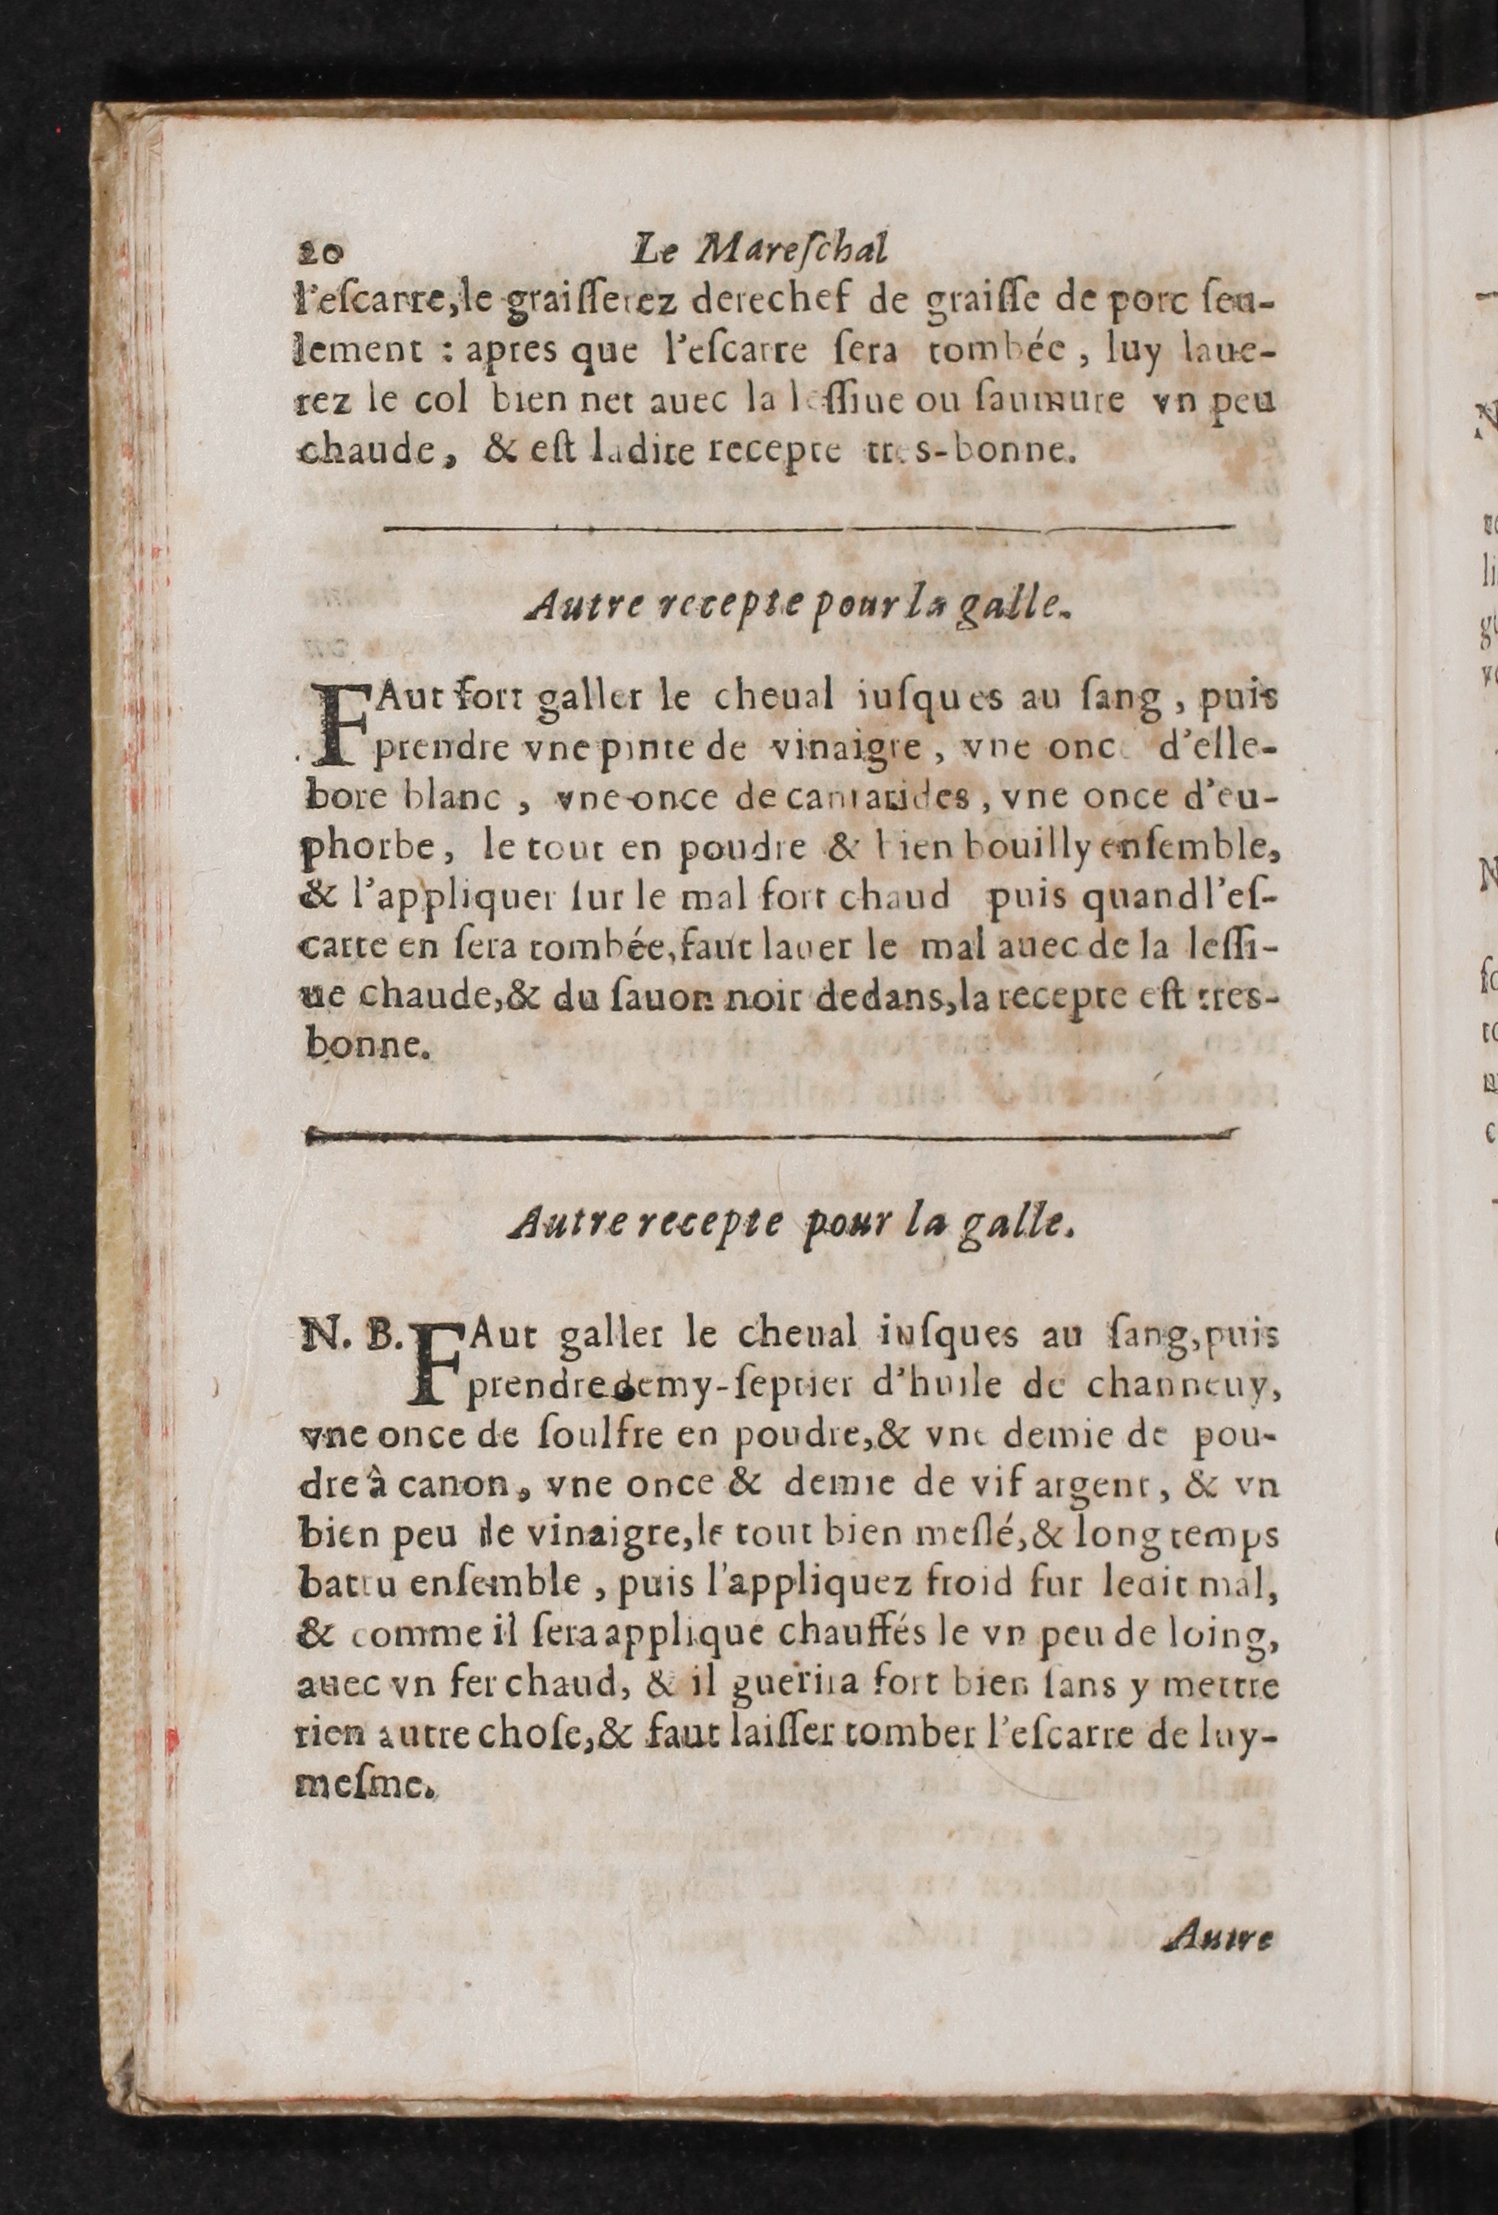 20 Le Mareſchal
l'eſcarre,le graiſſerez derechef de graiſſe de porc ſeu-
lement : apres que l'eſcarre ſera tombée , luy laue-
rez le col bien net auec la leſſiue ou ſaumure vn peu
chaude, & eſt ladite recepte tres-bonne.
Autre recepte pour la galle.
FAut fort galler le cheual iuſques au ſang , puis
prendre vne pinte de vinaigre , vne once d'elle-
bore blanc , vne once de cantarides , vne once d'eu-
phorbe, le tout en poudre & bien bouilly enſemble,
& l'appliquer ſur le mal fort chaud puis quand l'eſ-
carre en ſera tombée,faut lauer le mal auec de la leſſi-
ue chaude,& du ſauon noir dedans,la recepte eſt tres-
bonne.
Autre recepte pour la galle.
N. B. FAut galler le cheual iuſques au ſang,puis
prendre demy-ſeptier d'huile de channeuy,
vne once de ſoulfre en poudre,& vne demie de pou-
dre à canon, vne once & demie de vif argent, & vn
bien peu de vinaigre,le tout bien meſlé,& long temps
battu enſemble , puis l'appliquez froid ſur ledit mal,
& comme il ſera appliqué chauffés le vn peu de loing,
auec vn fer chaud, & il guerira fort bien ſans y mettre
rien autre choſe,& faut laiſſer tomber l'eſcarre de luy-
meſme.
Autre